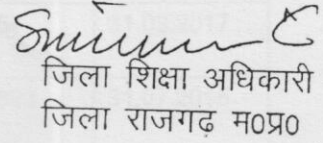 जिला शिक्षा अधिकारी
जिला राजगढ़ म०प्र०